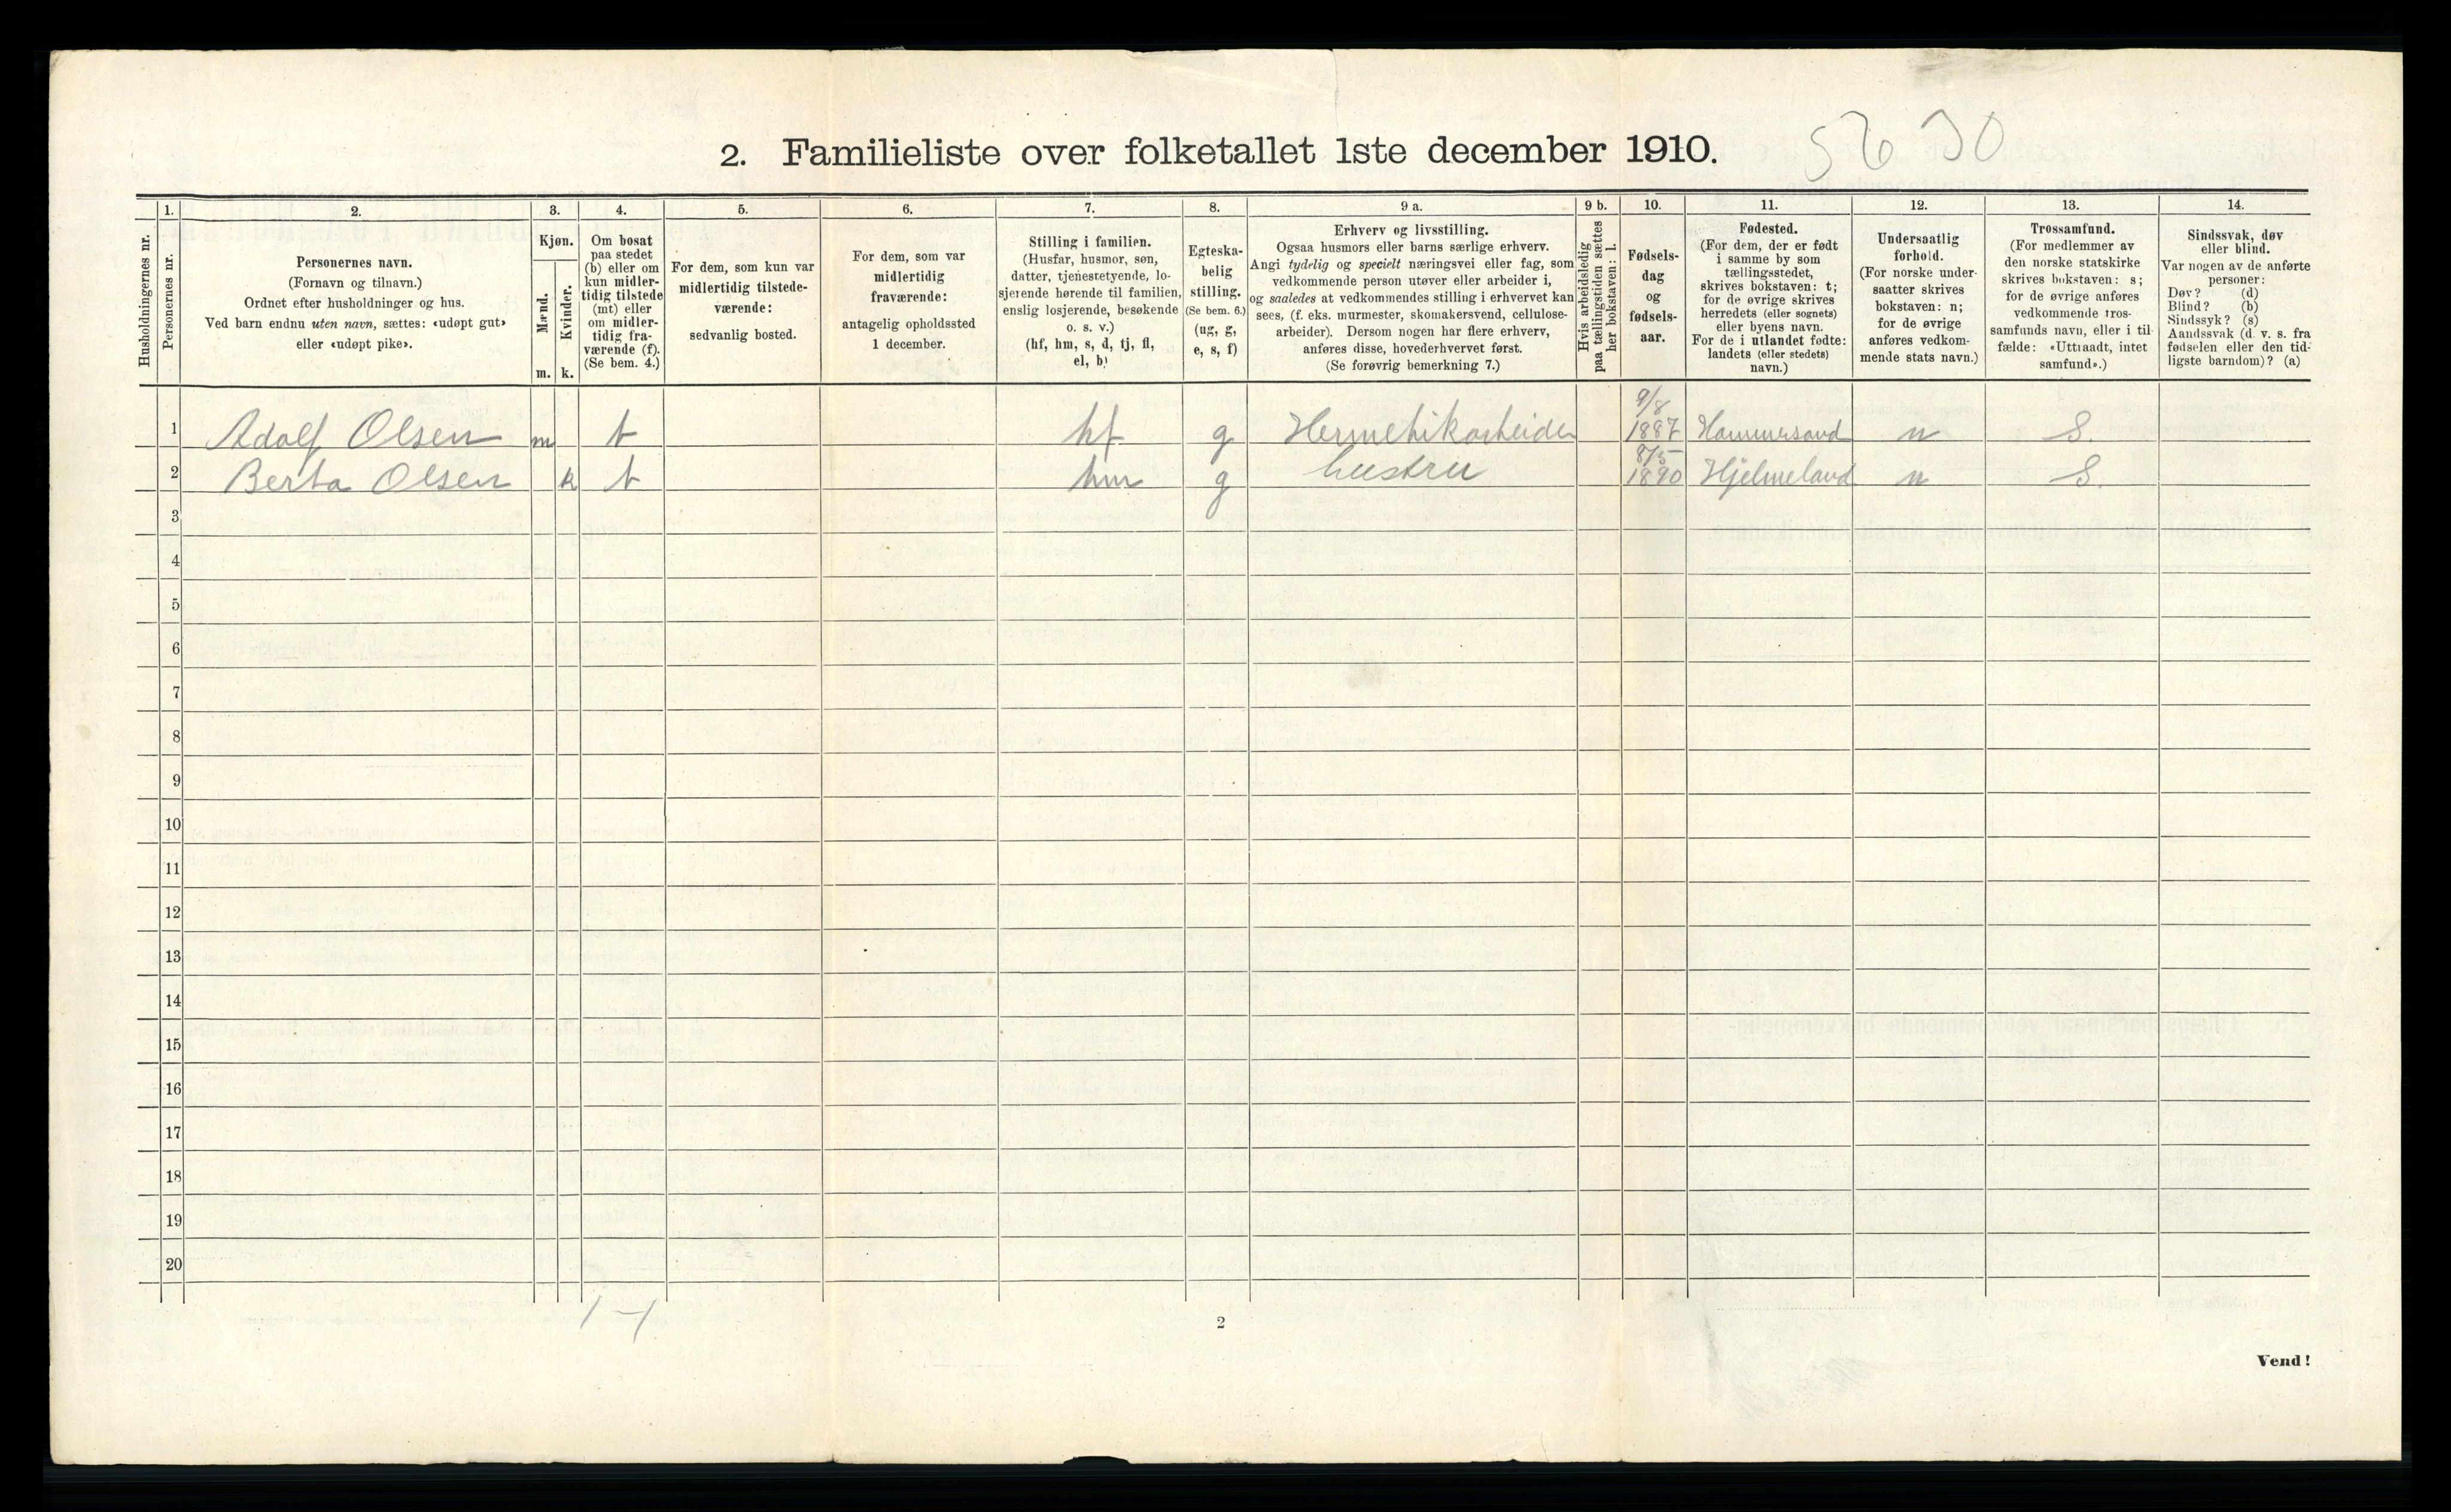 2. Familieliste over folketallet 1ste december 1910.
5630
Husholdningernes nr.
1.
Personernes nr.
2.
Personernes navn.
(Fornavn og tilnavn.)
Ordnet efter husholdninger og hus.
Ved barn endnu uten navn, sættes: «udøpt gut»
eller «udøpt pike».
3.
Kjøn.
Mænd.
m.
Kvinder.
k.
4.
Om bosat
paa stedet
(b) eller om
kun midler-
tidig tilstede
(mt) eller
om midler-
tidig fra-
værende (f).
(Se bem. 4.)
5.
For dem, som kun var
midlertidig tilstede-
værende:
sedvanlig bosted.
6.
For dem, som var
midlertidig
fraværende:
antagelig opholdssted
1 december.
7.
Stilling i familien.
(Husfar, husmor, søn,
datter, tjenestetyende, lo-
sjerende hørende til familien,
enslig losjerende, besøkende
o. s. v.)
(hf, hm, s, d, tj, fl,
el, b)
8.
Egteska-
belig
stilling.
(Se bem. 6.)
(ug, g,
e, s, f)
9 a.
Erhverv og livsstilling.
Ogsaa husmors eller barns særlige erhverv.
Angi tydelig og specielt næringsvei eller fag, som
vedkommende person utøver eller arbeider i,
og saaledes at vedkommendes stilling i erhvervet kan
sees, (f. eks. murmester, skomakersvend, cellulose-
arbeider). Dersom nogen har flere erhverv,
anføres disse, hovederhvervet først.
(Se forøvrig bemerkning 7.)
9 b.
Hvis arbeidsledig
paa tællingstiden sættes
her bokstaven: l.
10.
Fødsels-
dag
og
fødsels-
aar.
11.
Fødested.
(For dem, der er født
i samme by som
tællingsstedet,
skrives bokstaven: t;
for de øvrige skrives
herredets (eller sognets)
eller byens navn.
For de i utlandet fødte:
landets (eller stedets)
navn.)
12.
Undersaatlig
forhold.
(For norske under-
saatter skrives
bokstaven: n;
for de øvrige
anføres vedkom-
mende stats navn.)
13.
Trossamfund.
(For medlemmer av
den norske statskirke
skrives bokstaven: s;
for de øvrige anføres
vedkommende tros-
samfunds navn, eller i til-
fælde: «Uttraadt, intet
samfund».)
14.
Sindssvak, døv
eller blind.
Var nogen av de anførte
personer:
Døv? (d)
Blind? (b)
Sindssyk? (s)
Aandssvak (d. v. s. fra
fødselen eller den tid-
ligste barndom)? (a)
1 Adolf Olsen m b hf g Hermetikarbeider 9/8 1887 Hammersand n S.
2 Berta Olsen k b hm g hustru 8/5 1890 Hjelmeland n S.
3
4
5
6
7
8
9
10
11
12
13
14
15
16
17
18
19
20
1-1
2
Vend!